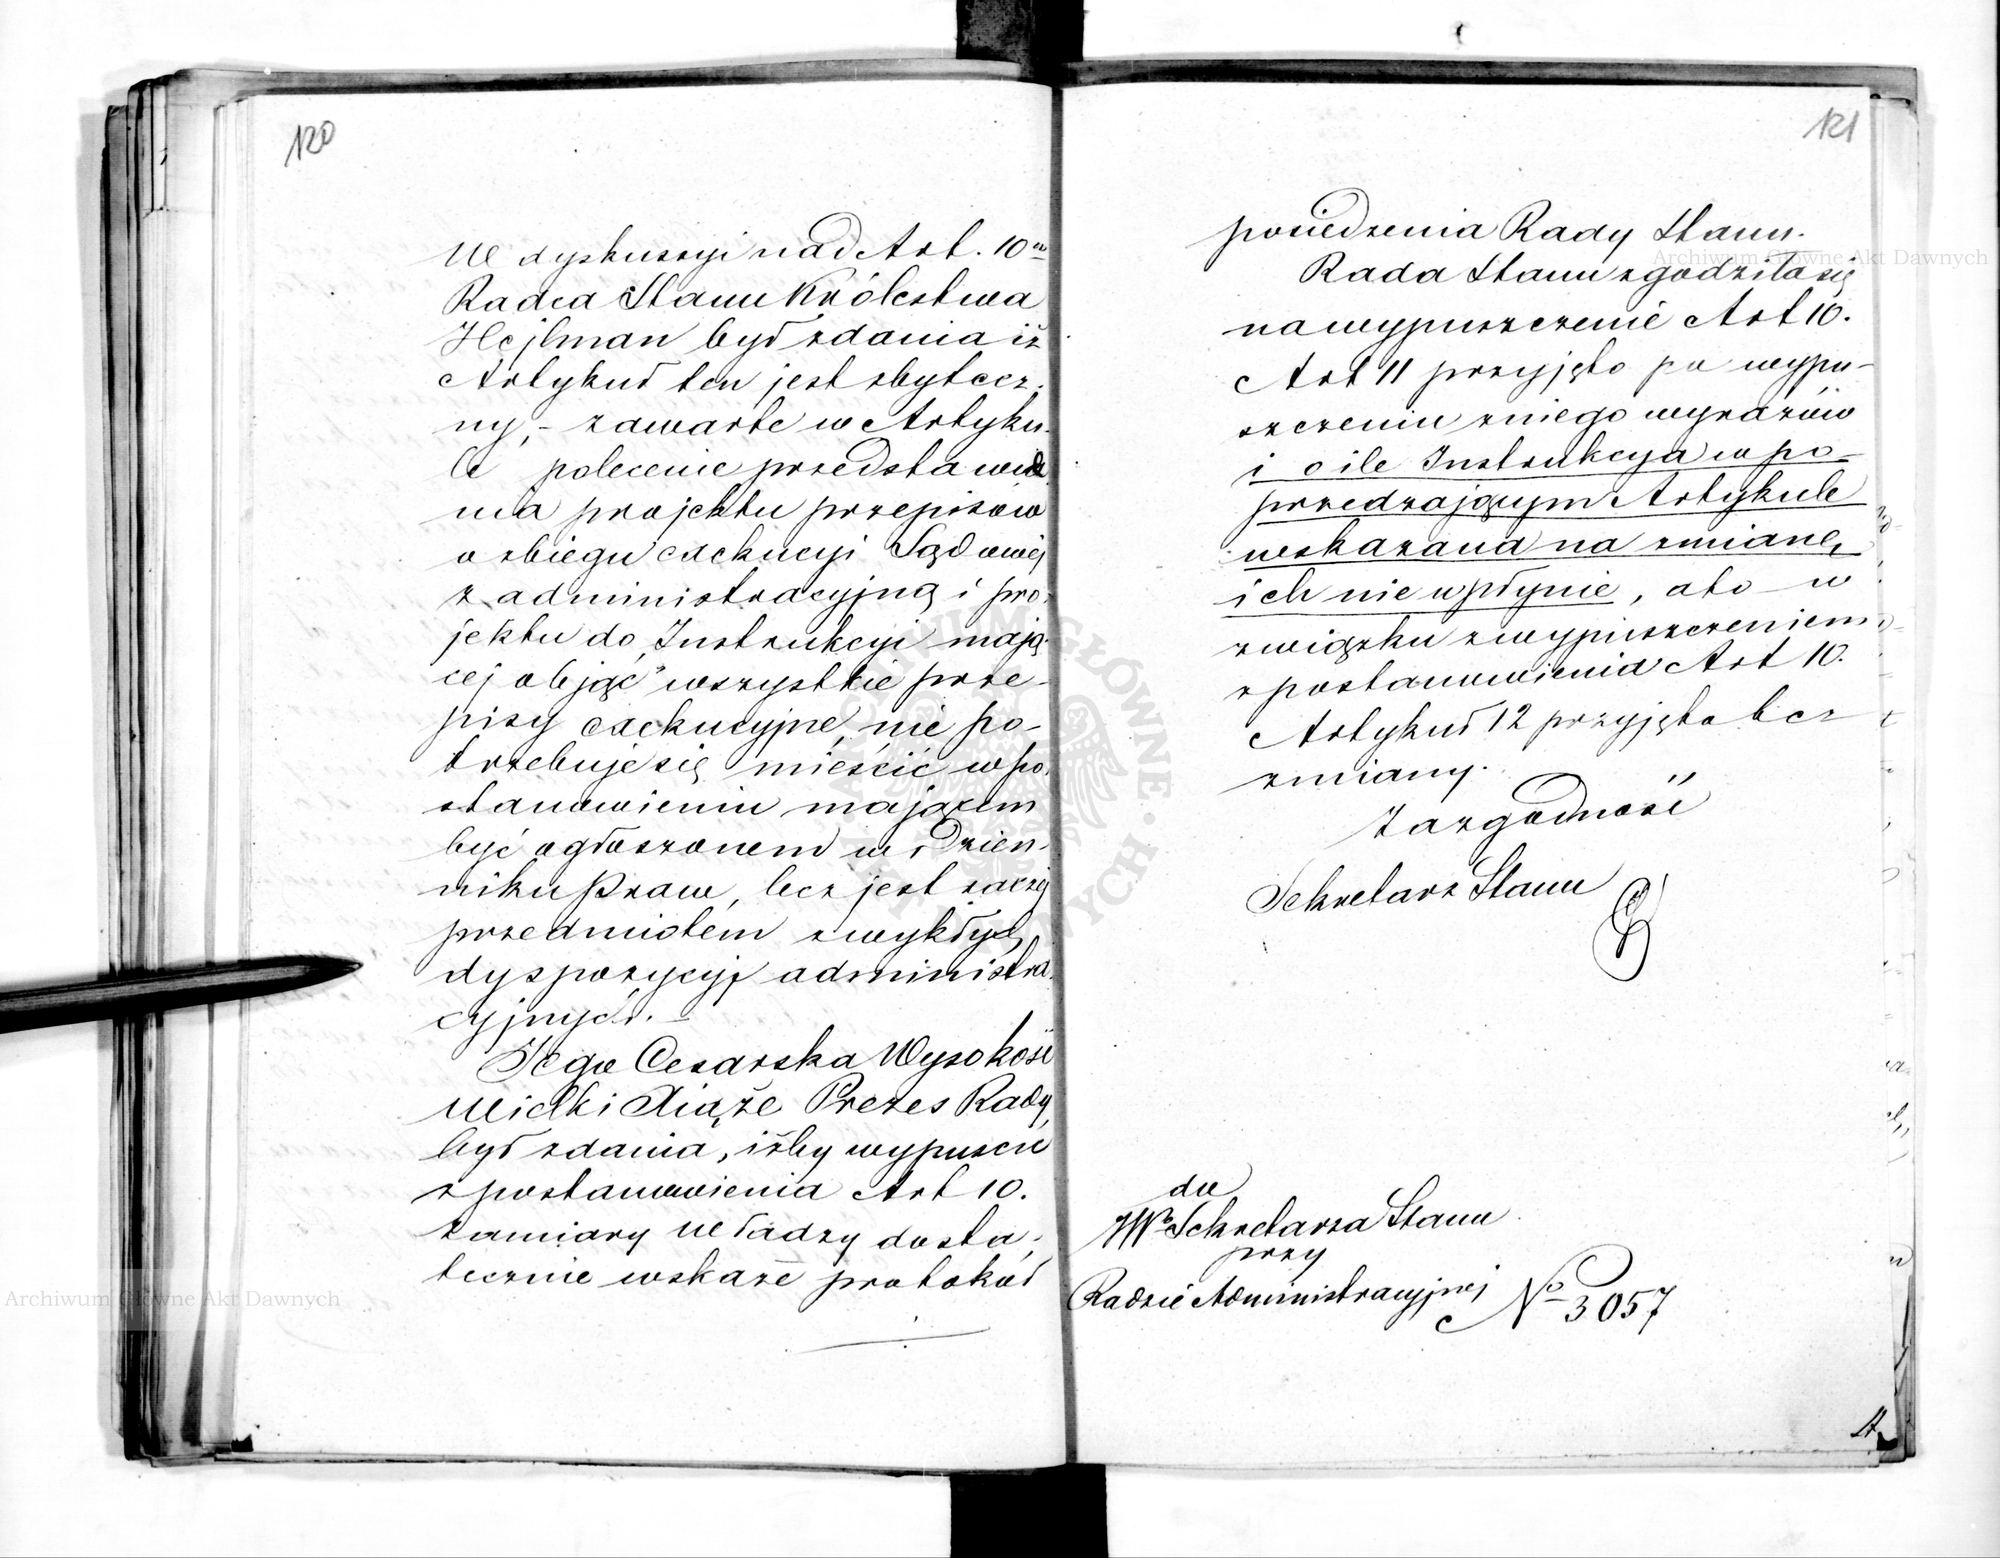 120
We dyskussyi nad Art. 10m
Radca Stanu Królestwa
Hejlman był zdania iż
Artykuł ten jest zbytecz-
ny, – zawarte w Artyku-
le polecenie przedstawie
nia projektu przepisów
o zbiegu exekucyi Sądowej
z administracyjną i pro-
jektu do Instrukcyi mają-
cej objąć wszystkie prze-
pisy exekucyjne, nie po-
trzebuje się mieścić w po-
stanowieniu mającem
być ogłoszonem w Dzien-
niku Praw, lecz jest raczej
przedmiotem zwykłych
dyspozycyj administra-
cyjnych. –
Jego Cesarska Wysokość
Wielki Xiąże Prezes Rady
był zdania, iżby wypuścić
z postanowienia Art 10.
zamiary Władzy dosta-
tecznie wskaże protokół
121
posiedzenia Rady Stanu.
Rada Stanu zgodziła się
na wypuszczenie Art 10.
Art 11 przyjęto po wypu-
szczeniu z niego wyrazów
i o ile Instrukcya w po-
przedzającym Artykule
wskazana na zmianę
ich nie wpłynie, a to w
związku z wypuszczeniem
z postanowienia Art 10.
Artykuł 12 przyjęto bez
zmiany.
Za zgodność
Sekretarz Stanu
do
JWo Sekretarza Stanu
przy
Radzie Administracyjnej No 3057
Archiwum Główne Akt Dawnych
Archiwum Główne Akt Dawnych
ARCHIWUM GŁÓWNE AKT DAWNYCH